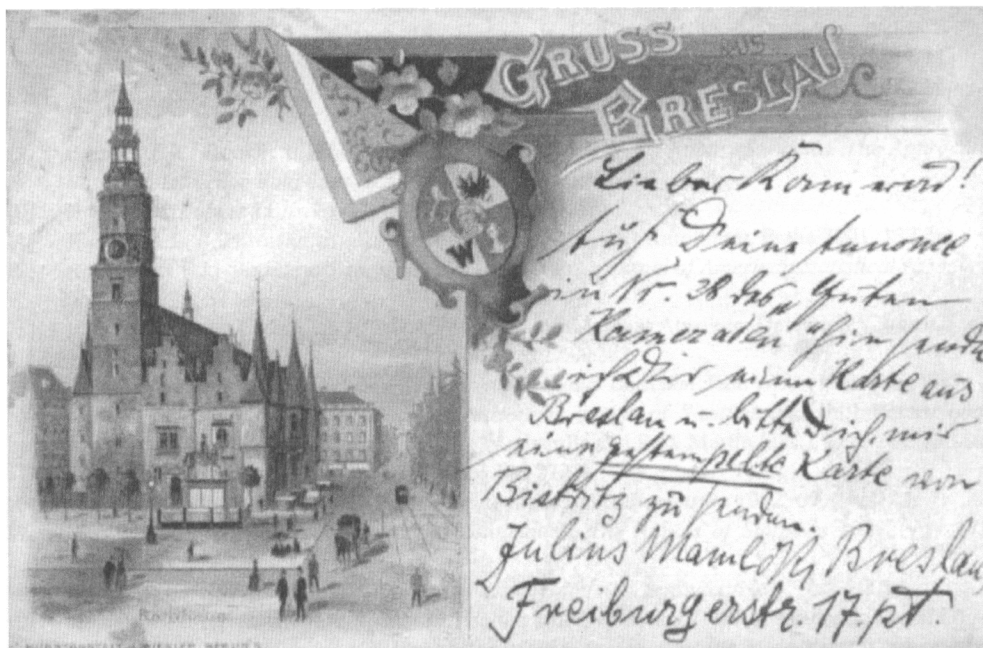 GRUSS AUS
BRESLAU
W
Lieber Kamerad!
Auf Deine Annonce
in Nr. 28 des „Guten
Kameraden“ hin sende
ich Dir eine Karte aus
Breslau u. bitte Dich, mir
eine gestempelte Karte von
Bistritz zu senden.
Julius Breslau,
Freiburgerstr. 17. pt.
Rathhaus